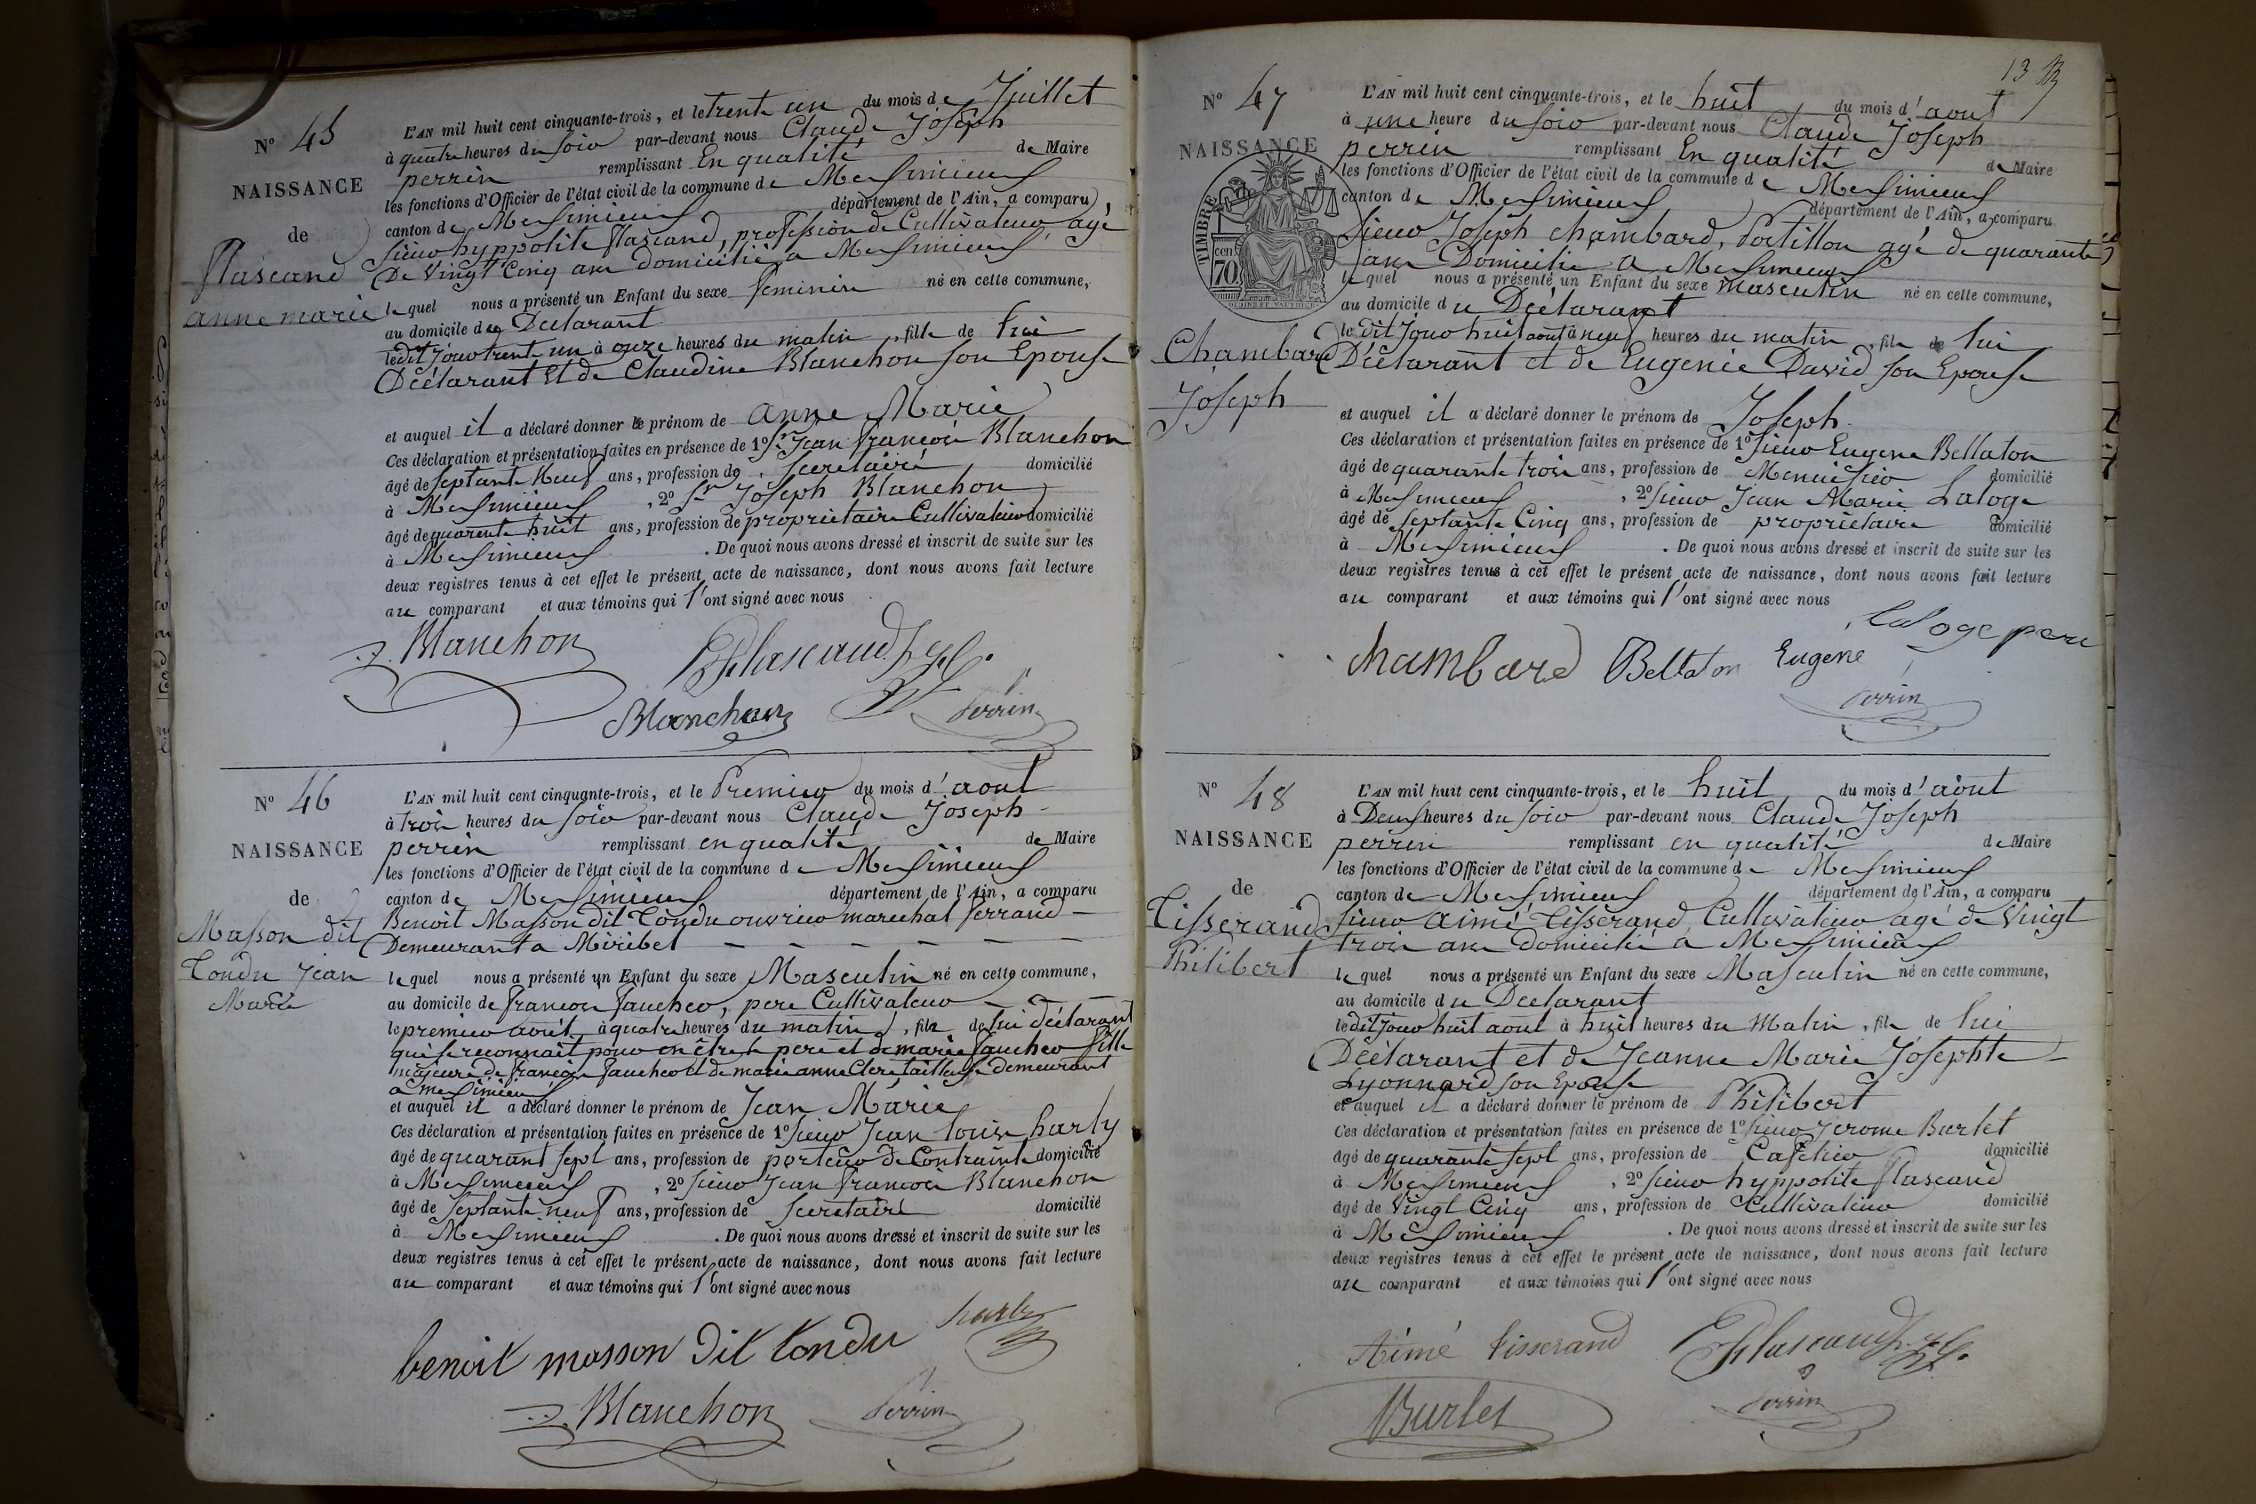 N° 45
NAISSANCE
de
Flascand
anne marie
L'AN mil huit cent cinquante-trois, et le trente un du mois de Juillet
à quatre heures du soir par-devant nous Claude Joseph
perrin remplissant En qualité de Maire
les fonctions d'Officier de l'état civil de la commune de Meximieux
canton de Meximieux département de l'Ain, a comparu
sieur hyppolite flascand, profession de Cultivateur agé
De Vingt Cinq ans domicilié a Meximieux
lequel nous a présenté un Enfant du sexe feminin né en cette commune,
au domicile du Déclarant
ledit jour trente un à onze heures du matin, fille de lui
Déclarant Et de Claudine Blanchon son Epouse
et auquel il a déclaré donner le prénom de anne Marie
Ces déclaration et présentation faites en présence de 1° Sr Jean françois Blanchon
âgé de septante Neuf ans, profession de Secretaire domicilié
à Meximieux, 2° Sr Joseph Blanchon
âgé de quarente huit ans, profession de propriétaire Cultivateur domicilié
à Meximieux. De quoi nous avons dressé et inscrit de suite sur les
deux registres tenus à cet effet le présent acte de naissance, dont nous avons fait lecture
au comparant et aux témoins qui l'ont signé avec nous
Blanchon
Flascaud
Blanchon
Perrin
N° 46
NAISSANCE
de
Masson dit
Tondu Jean
Marie
L'AN mil huit cent cinquante-trois, et le Premier du mois d'aout
à trois heures du soir par-devant nous Claude Joseph
perrin remplissant en qualité de Maire
les fonctions d'Officier de l'état civil de la commune de Meximieux
canton de Meximieux département de l'Ain, a comparu
Benoit Masson dit Tondu ouvrier marechal ferrand
Demeurant a Miribel
lequel nous a présenté un Enfant du sexe Masculin né en cette commune,
au domicile de françois faucher, pere Cultivateur
le premier aout à quatre heures du matin, fils de lui déclarant
qui se reconnait pour en être le pere et de marie faucher fille
majeure de françois faucher et de marie anne Clere tailleuse demeurant
a meximieux
et auquel il a déclaré donner le prénom de Jean Marie
Ces déclaration et présentation faites en présence de 1° sieur Jean louis harly
âgé de quarant sept ans, profession de porteur de Contrainte domicilié
à Meximieux, 2° sieur Jean françois Blanchon
âgé de septante neuf ans, profession de secretaire domicilié
à Meximieux. De quoi nous avons dressé et inscrit de suite sur les
deux registres tenus à cet effet le présent acte de naissance, dont nous avons fait lecture
au comparant et aux témoins qui l'ont signé avec nous
benoit masson dit tondu
harly
Blanchon
Perrin
13
N° 47
NAISSANCE
TIMBRE
70
Chambard
Joseph
L'AN mil huit cent cinquante-trois, et le huit du mois d'aout
à une heure du soir par-devant nous Claude Joseph
perrin remplissant En qualité de Maire
les fonctions d'Officier de l'état civil de la commune de Meximieux
canton de Meximieux département de l'Ain, a comparu
Sieur Joseph chambard, Postillon agé de quarante
ans Domicilié a Meximieux
lequel nous a présenté un Enfant du sexe masculin né en cette commune,
au domicile du Déclarant
le dit jour huit aout à neuf heures du matin, fils de lui
Déclarant et de Eugenie David son Epouse
et auquel il a déclaré donner le prénom de Joseph
Ces déclaration et présentation faites en présence de 1° sieur Eugene Bellaton
âgé de quarante trois ans, profession de Menuisier domicilié
à Meximieux, 2° sieur Jean Marie Laloge
âgé de septante Cinq ans, profession de propriétaire domicilié
à Meximieux. De quoi nous avons dressé et inscrit de suite sur les
deux registres tenus à cet effet le présent acte de naissance, dont nous avons fait lecture
au comparant et aux témoins qui l'ont signé avec nous
Laloge pere
chambard Bellaton Eugene
Perrin
N° 48
NAISSANCE
de
Tisserand
Philibert
L'AN mil huit cent cinquante-trois, et le huit du mois d'aout
à Deux heures du soir par-devant nous Claude Joseph
perrin remplissant en qualité de Maire
les fonctions d'Officier de l'état civil de la commune de Meximieux
canton de Meximieux département de l'Ain, a comparu
sieur aimé Tisserand, Cultivateur agé de Vingt
trois ans domicilié a Meximieux
lequel nous a présenté un Enfant du sexe Masculin né en cette commune,
au domicile du Déclarant
le dit jour huit aout à huit heures du Matin, fils de lui
Déclarant et de Jeanne Marie Josephte
Lyonnard son Epouse
et auquel il a déclaré donner le prénom de Philibert
Ces déclaration et présentation faites en présence de 1° sieur Jerome Burlet
âgé de quarante sept ans, profession de Cafetier domicilié
à Meximieux, 2° sieur hyppolite flascand
âgé de Vingt Cinq ans, profession de Cultivateur domicilié
à Meximieux. De quoi nous avons dressé et inscrit de suite sur les
deux registres tenus à cet effet le présent acte de naissance, dont nous avons fait lecture
au comparant et aux témoins qui l'ont signé avec nous
Aimé tisserand
Flascaud
Burlet
Perrin